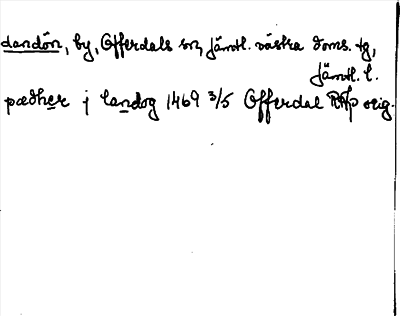 dandön, by, Offerdals sn, Jämtl. västra doms. tg,
Jämtl. l.
pædher j landog 1469 3/5 Offerdal RAp orig.